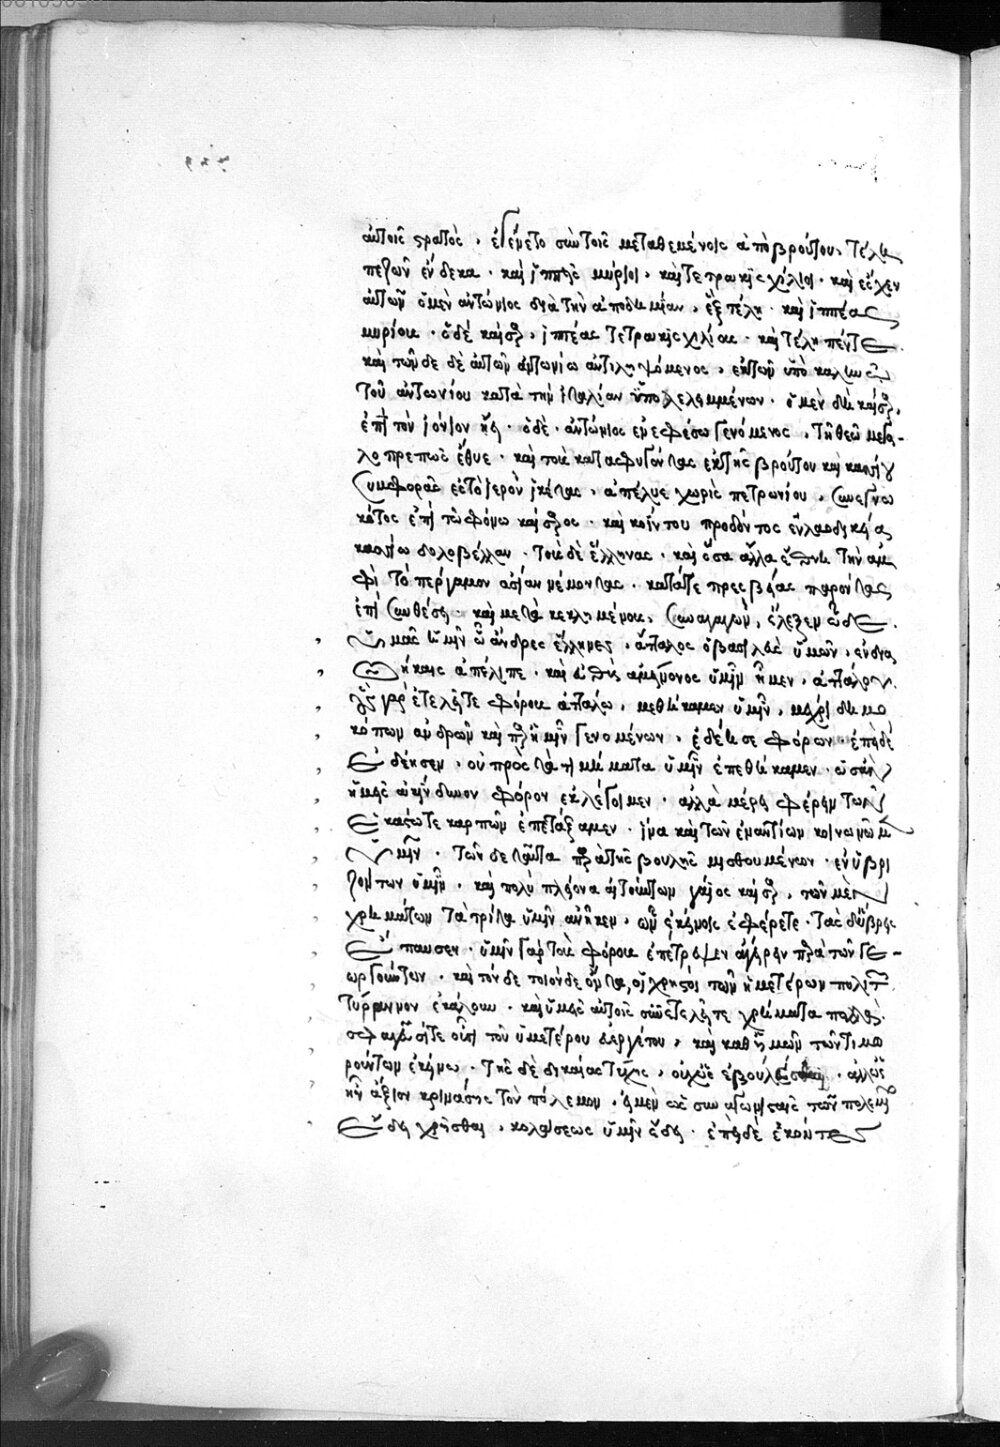 αὐτοῖς στρατὸς, ἐγένετο σὺν τοῖς μεταθεμένοις ἀπὸ βρούτου, τέλη
πεζῶν ἕνδεκα· καὶ ἱππεῖς μύριοι, καὶ τετρακισχίλιοι· καὶ εἶχεν
αὐτῶν ὁ μὲν ἀντώνιος διὰ τὴν ἀποδημίαν, ἓξ τέλη· καὶ ἱππέας
μυρίους· ὁ δὲ καῖσαρ, ἱππέας τετρακισχιλίους· καὶ τέλη πέντε.
καὶ τῶν δε δὲ αὐτῶν ἀντωνίω ἀντιληψόμενος, ἐκ τῶν ὑπὸ
τοῦ ἀντωνίου κατὰ τὴν ἰταλίαν ὑπολελειμμένων· ὁ μὲν δὴ καῖσαρ,
ἐπὶ τὸν ἰόνιον ἤει· ὁ δὲ· ἀντώνιος ἐν ἐφέσω γενόμενος, τῆ θεῶ μεγα-
λοπρεπῶς ἔθυε· καὶ τοὺς καταφυγόντας ἐκ τῆς βρούτου καὶ κασίου
συμφορᾶς ἐς τὸ ἱερὸν ἱκέτας, ἀπέλυε χωρὶς πετρωνίου, συνεγνω
κότος ἐπὶ τῶ φόνω καίσαρος· καὶ κοΐντου προδόντος ἐν λαοδικεία
κασσίω δολοβέλλαν· τοὺς δὲ ἕλληνας· καὶ ὅσα ἄλλα ἔθνη τὴν ἀμ
φὶ τὸ πέργαμον ἀσίαν νέμονται· κατά τε πρεσβείας παρόντας
ἐπὶ συνθέσει· καὶ μετακεκλημένους, συναγαγὼν, ἔλεξεν ὧδε.
ὑμᾶς ἡμῖν ὦ ἄνδρες ἕλληνες, ἄτταλος ὁ βασιλεὺς ὑμῶν, ἐν δια
θήκαις ἀπέλιπε· καὶ εὐθὺς ἀμείνονος ὑμῖν ἦμεν, ἀττάλου.
οὓς γὰρ ἐτελεῖτε φόρους ἀττάλω, μεθήκαμεν ὑμῖν, μέχρι δημο
κόπων ἀνδρῶν καὶ παρ' ἡμῖν γενομένων, ἐδέησε φόρων· ἐπεὶ δὲ
ἐδέησεν, οὐ πρὸς τὰ τιμήματα ὑμῖν ἐπεθήκαμεν· ὡς ἂν
ἡμεῖς ἀκίνδυνον φόρον ἐκλέγοιμεν· ἀλλὰ μέρη φέρειν τῶν
ἑκάστοτε καρπῶν ἐπετάξαμεν· ἵνα καὶ τῶν ἐναντίων κοινωνῶμεν
ὑμῖν· τῶν δε ταῦτα παρὰ τῆς βουλῆς μισθουμένων· ἐνυβρι
ζόντων ὑμῖν, καὶ πολὺ πλείονα αἰτούντων γάϊος καῖσαρ, τῶν μὲν
χρημάτων τὰ τρίτα ὑμῖν ἀνῆκεν, ὧν ἐκείνοις ἐφέρετε· τὰς δ' ὕβρεις
ἔπαυσεν· ὑμῖν γὰρ τοὺς φόρους ἐπέτρεψεν ἀγείρειν παρὰ τῶν γε-
ωργούντων· καὶ τόνδε τοιόνδε ὄντα, οἱ χρηστοὶ τῶν ἡμετέρων πολιτῶν
τύραννον ἐκάλουν· καὶ ὑμεῖς αὐτοῖς συνετελεῖτε χρήματα πολλὰ.
σφαγεῦσί τε οὖσι τοῦ ὑμετέρου εὐεργέτου, καὶ καθ' ἡμῶν τῶν τιμω
ρούντων ἐκείνω· τῆς δὲ δικαίας τύχης, οὐχ ὡς ἐβούλεσθε, ἀλλ' ὡς
ἦν ἄξιον κρινάσης τὸν πόλεμον, εἰ μὲν ὡς συναγωνισταῖς τῶν πολεμίων
ἔδει χρῆσθαι, κολάσεως ὑμῖν ἔδει· ἐπεὶ δὲ ἑκόντες